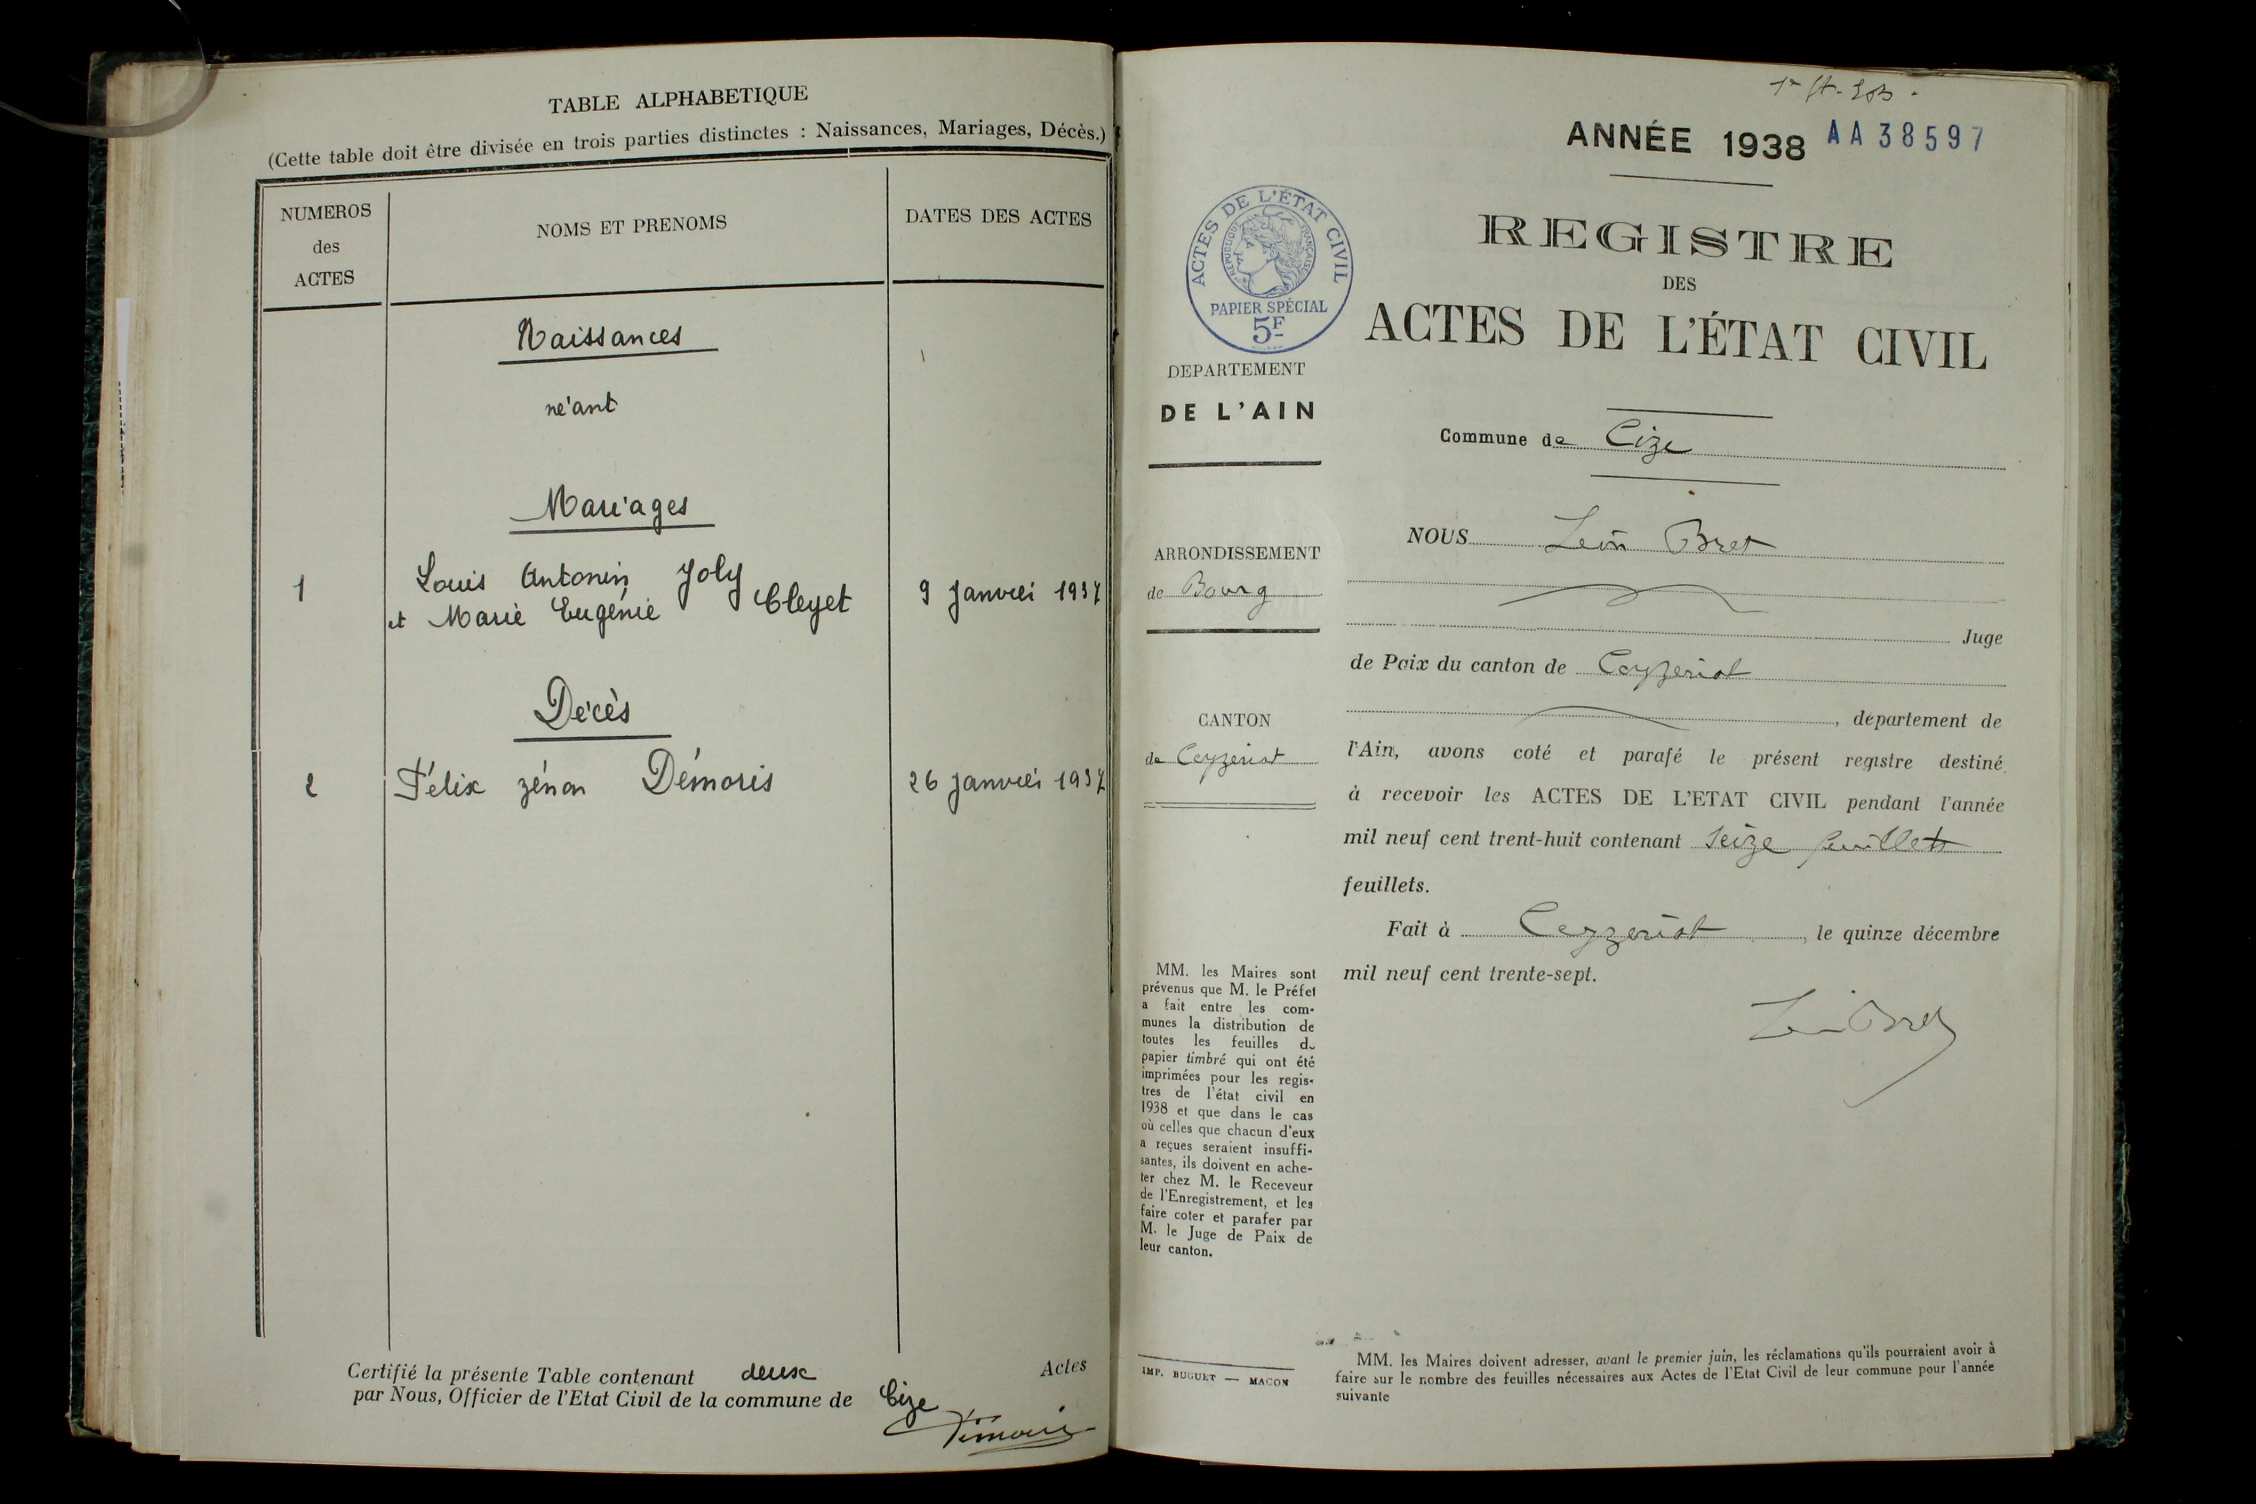 TABLE ALPHABETIQUE
(Cette table doit être divisée en trois parties distinctes : Naissances, Mariages, Décès.)
NUMEROS
des
ACTES
NOMS ET PRENOMS
DATES DES ACTES
Naissances
néant
Mariages
1 Louis Antonin Joly
et Marie Eugénie Cleyet 9 Janvier 1937
Décès
2 Félix zénon Démoris 26 Janvier 1937
Certifié la présente Table contenant deux Actes
par Nous, Officier de l'Etat Civil de la commune de Cize
ANNÉE 1938 AA38597
REGISTRE
DES
ACTES DE L'ÉTAT CIVIL
ACTES DE L'ÉTAT CIVIL
REPUBLIQUE FRANÇAISE
PAPIER SPÉCIAL
5F
DEPARTEMENT
DE L'AIN
ARRONDISSEMENT
de Bourg
CANTON
de Ceyzeriat
MM. les Maires sont
prévenus que M. le Préfet
a fait entre les com-
munes la distribution de
toutes les feuilles de
papier timbré qui ont été
imprimées pour les regis-
tres de l'état civil en
1938 et que dans le cas
où celles que chacun d'eux
a reçues seraient insuffi-
santes, ils doivent en ache-
ter chez M. le Receveur
de l'Enregistrement, et les
faire coter et parafer par
M. le Juge de Paix de
leur canton.
IMP. BUGUET — MACON
Commune de Cize
NOUS Léon Bret
Juge
de Paix du canton de Ceyzeriat
, département de
l'Ain, avons coté et parafé le présent registre destiné
à recevoir les ACTES DE L'ETAT CIVIL pendant l'année
mil neuf cent trent-huit contenant seize feuillets
feuillets.
Fait à Ceyzeriat, le quinze décembre
mil neuf cent trente-sept.
Léon Bret
MM. les Maires doivent adresser, avant le premier juin, les réclamations qu'ils pourraient avoir à
faire sur le nombre des feuilles nécessaires aux Actes de l'Etat Civil de leur commune pour l'année
suivante